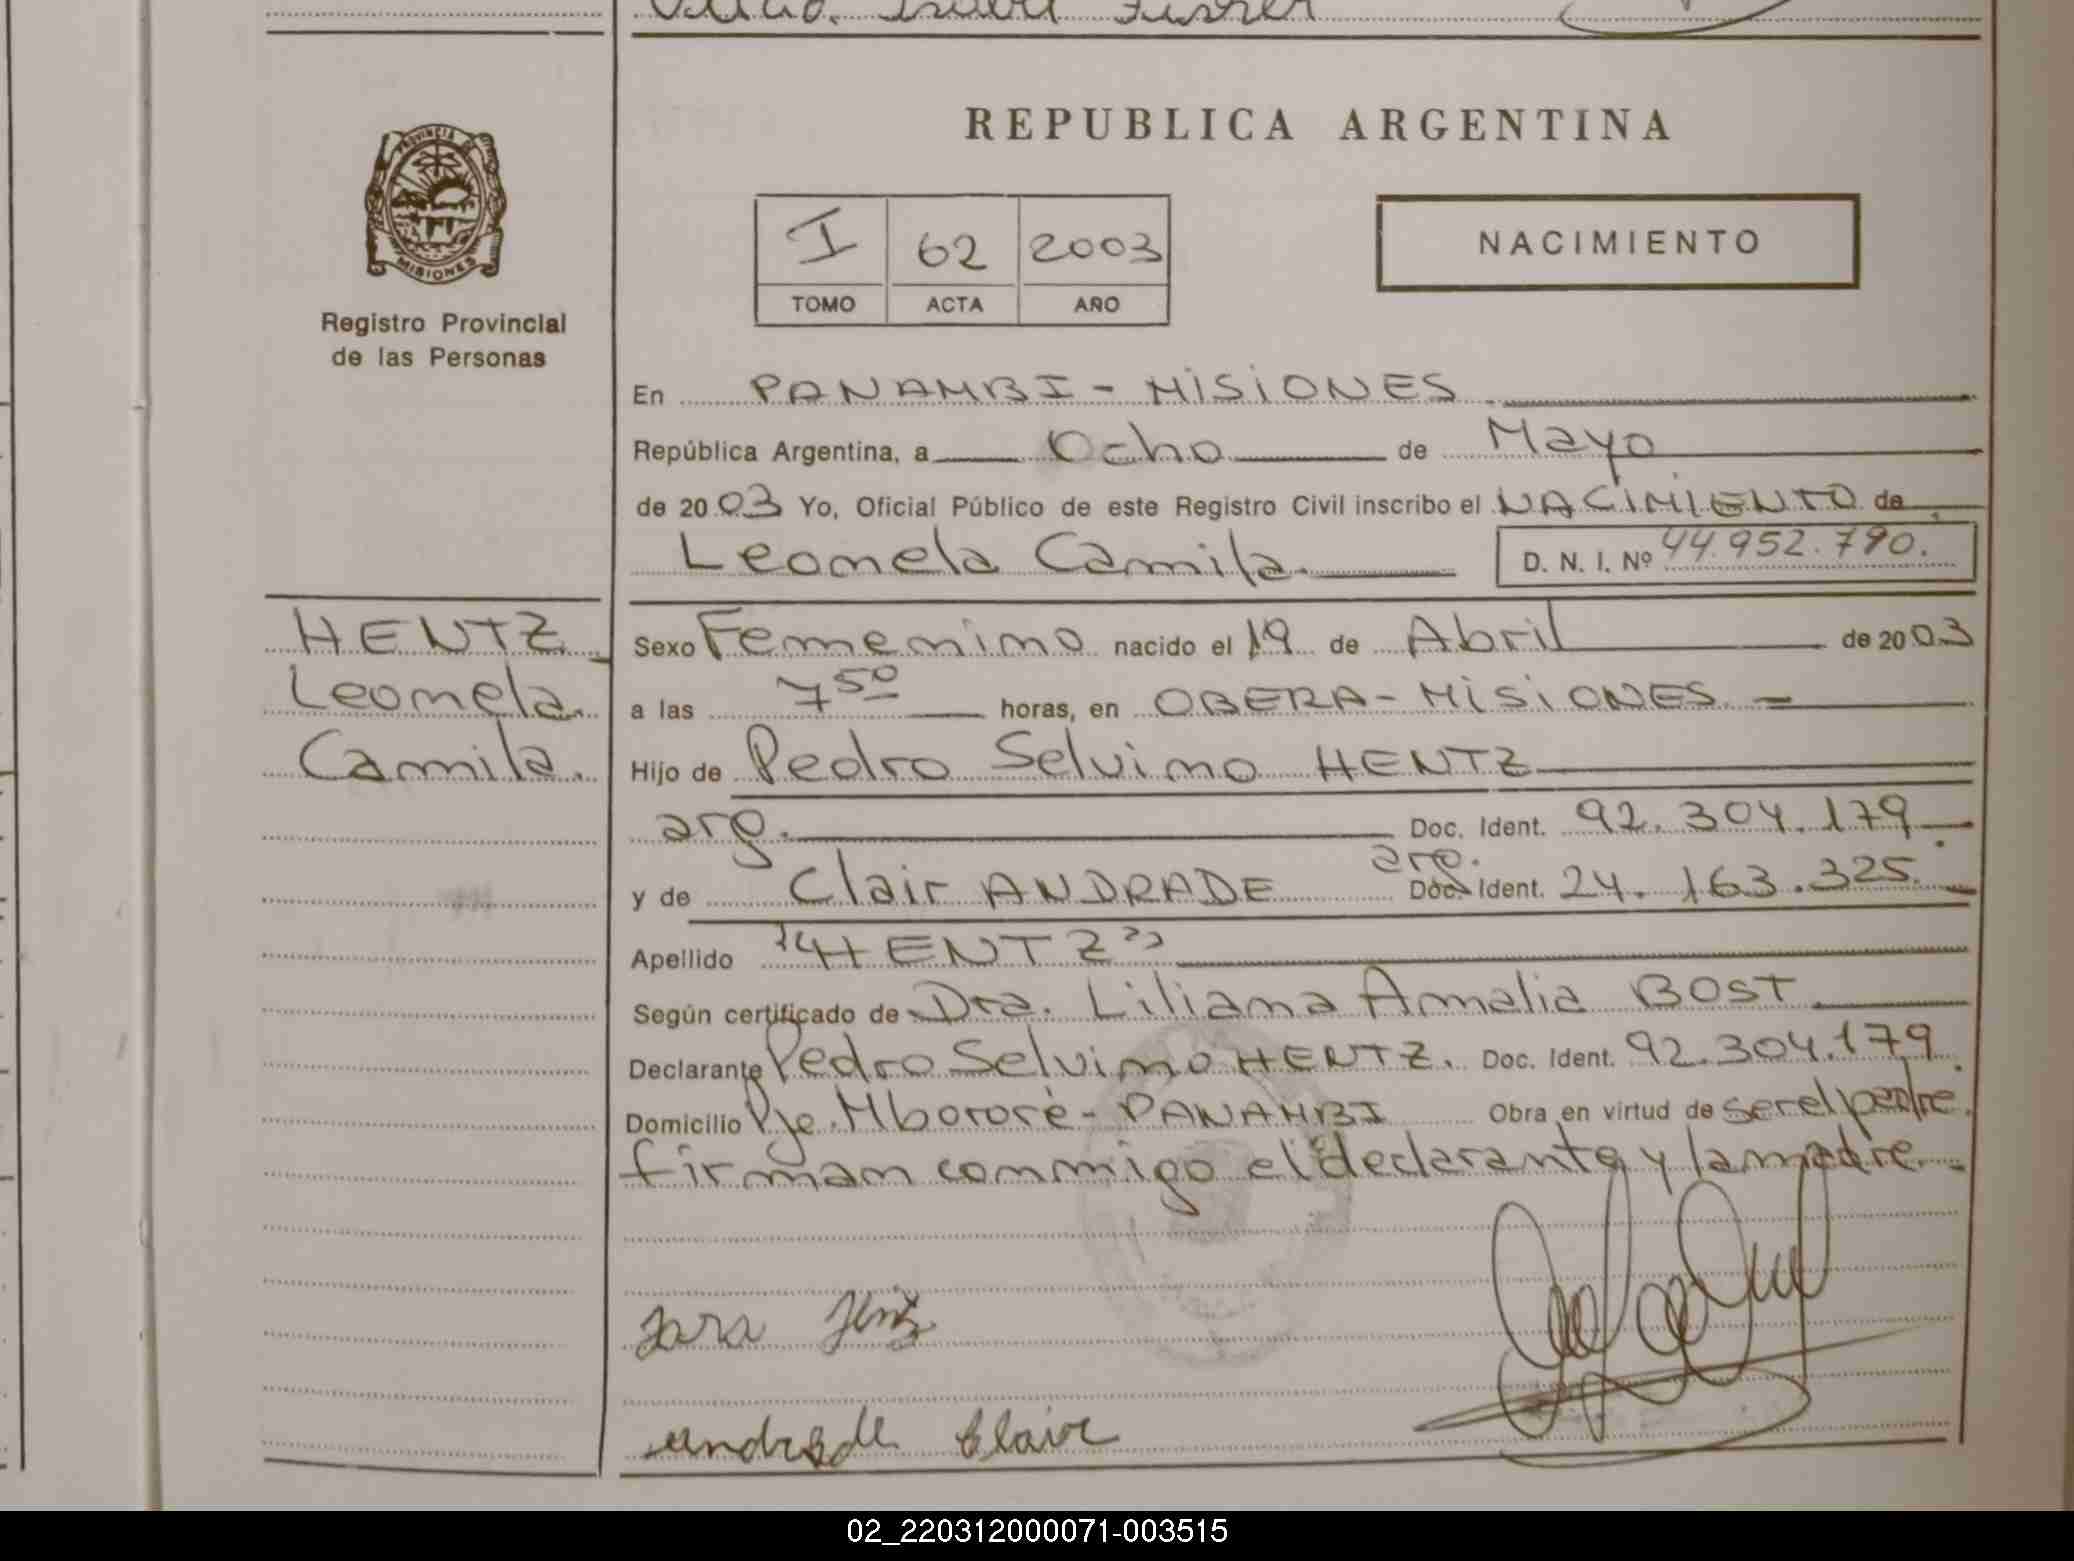 REPUBLICA ARGENTINA
PROVINCIA DE
MISIONES
Registro Provincial
de las Personas
I 62 2003
TOMO ACTA AÑO
NACIMIENTO
En PANAMBI - MISIONES
República Argentina, a Ocho de Mayo
de 2003 Yo, Oficial Público de este Registro Civil inscribo el NACIMIENTO de
Leonela Camila. D. N. I. Nº 44.952.790.
HENTZ
Leonela
Camila.
Sexo Femenino nacido el 19 de Abril de 2003
a las 7 50 horas, en OBERA - MISIONES
Hijo de Pedro Selvino HENTZ
arg. Doc. Ident. 92.304.179
y de Clair ANDRADE arg. Doc. Ident. 24.163.325.
Apellido "HENTZ"
Según certificado de Dra. Liliana Amalia BOST
Declarante Pedro Selvino HENTZ. Doc. Ident. 92.304.179
Domicilio Pje. Mbororé - PANAMBI Obra en virtud de ser el padre.
firman conmigo el declarante y la madre.
andrade Clair
02_220312000071-003515